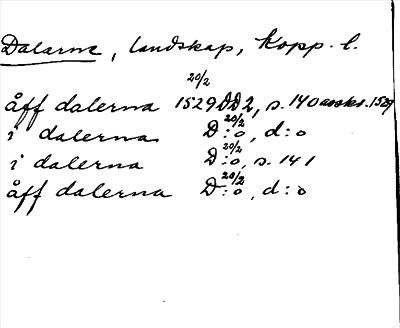 Dalarne, landskap, Kopp. l.
20/2
åff dalerna 1529 DD2, s. 140 avskr. 1529
i dalerna 20/2 D:o, d:o
i dalerna 20/2 D:o, s. 141
åff dalerna 20/2 D:o, d:o